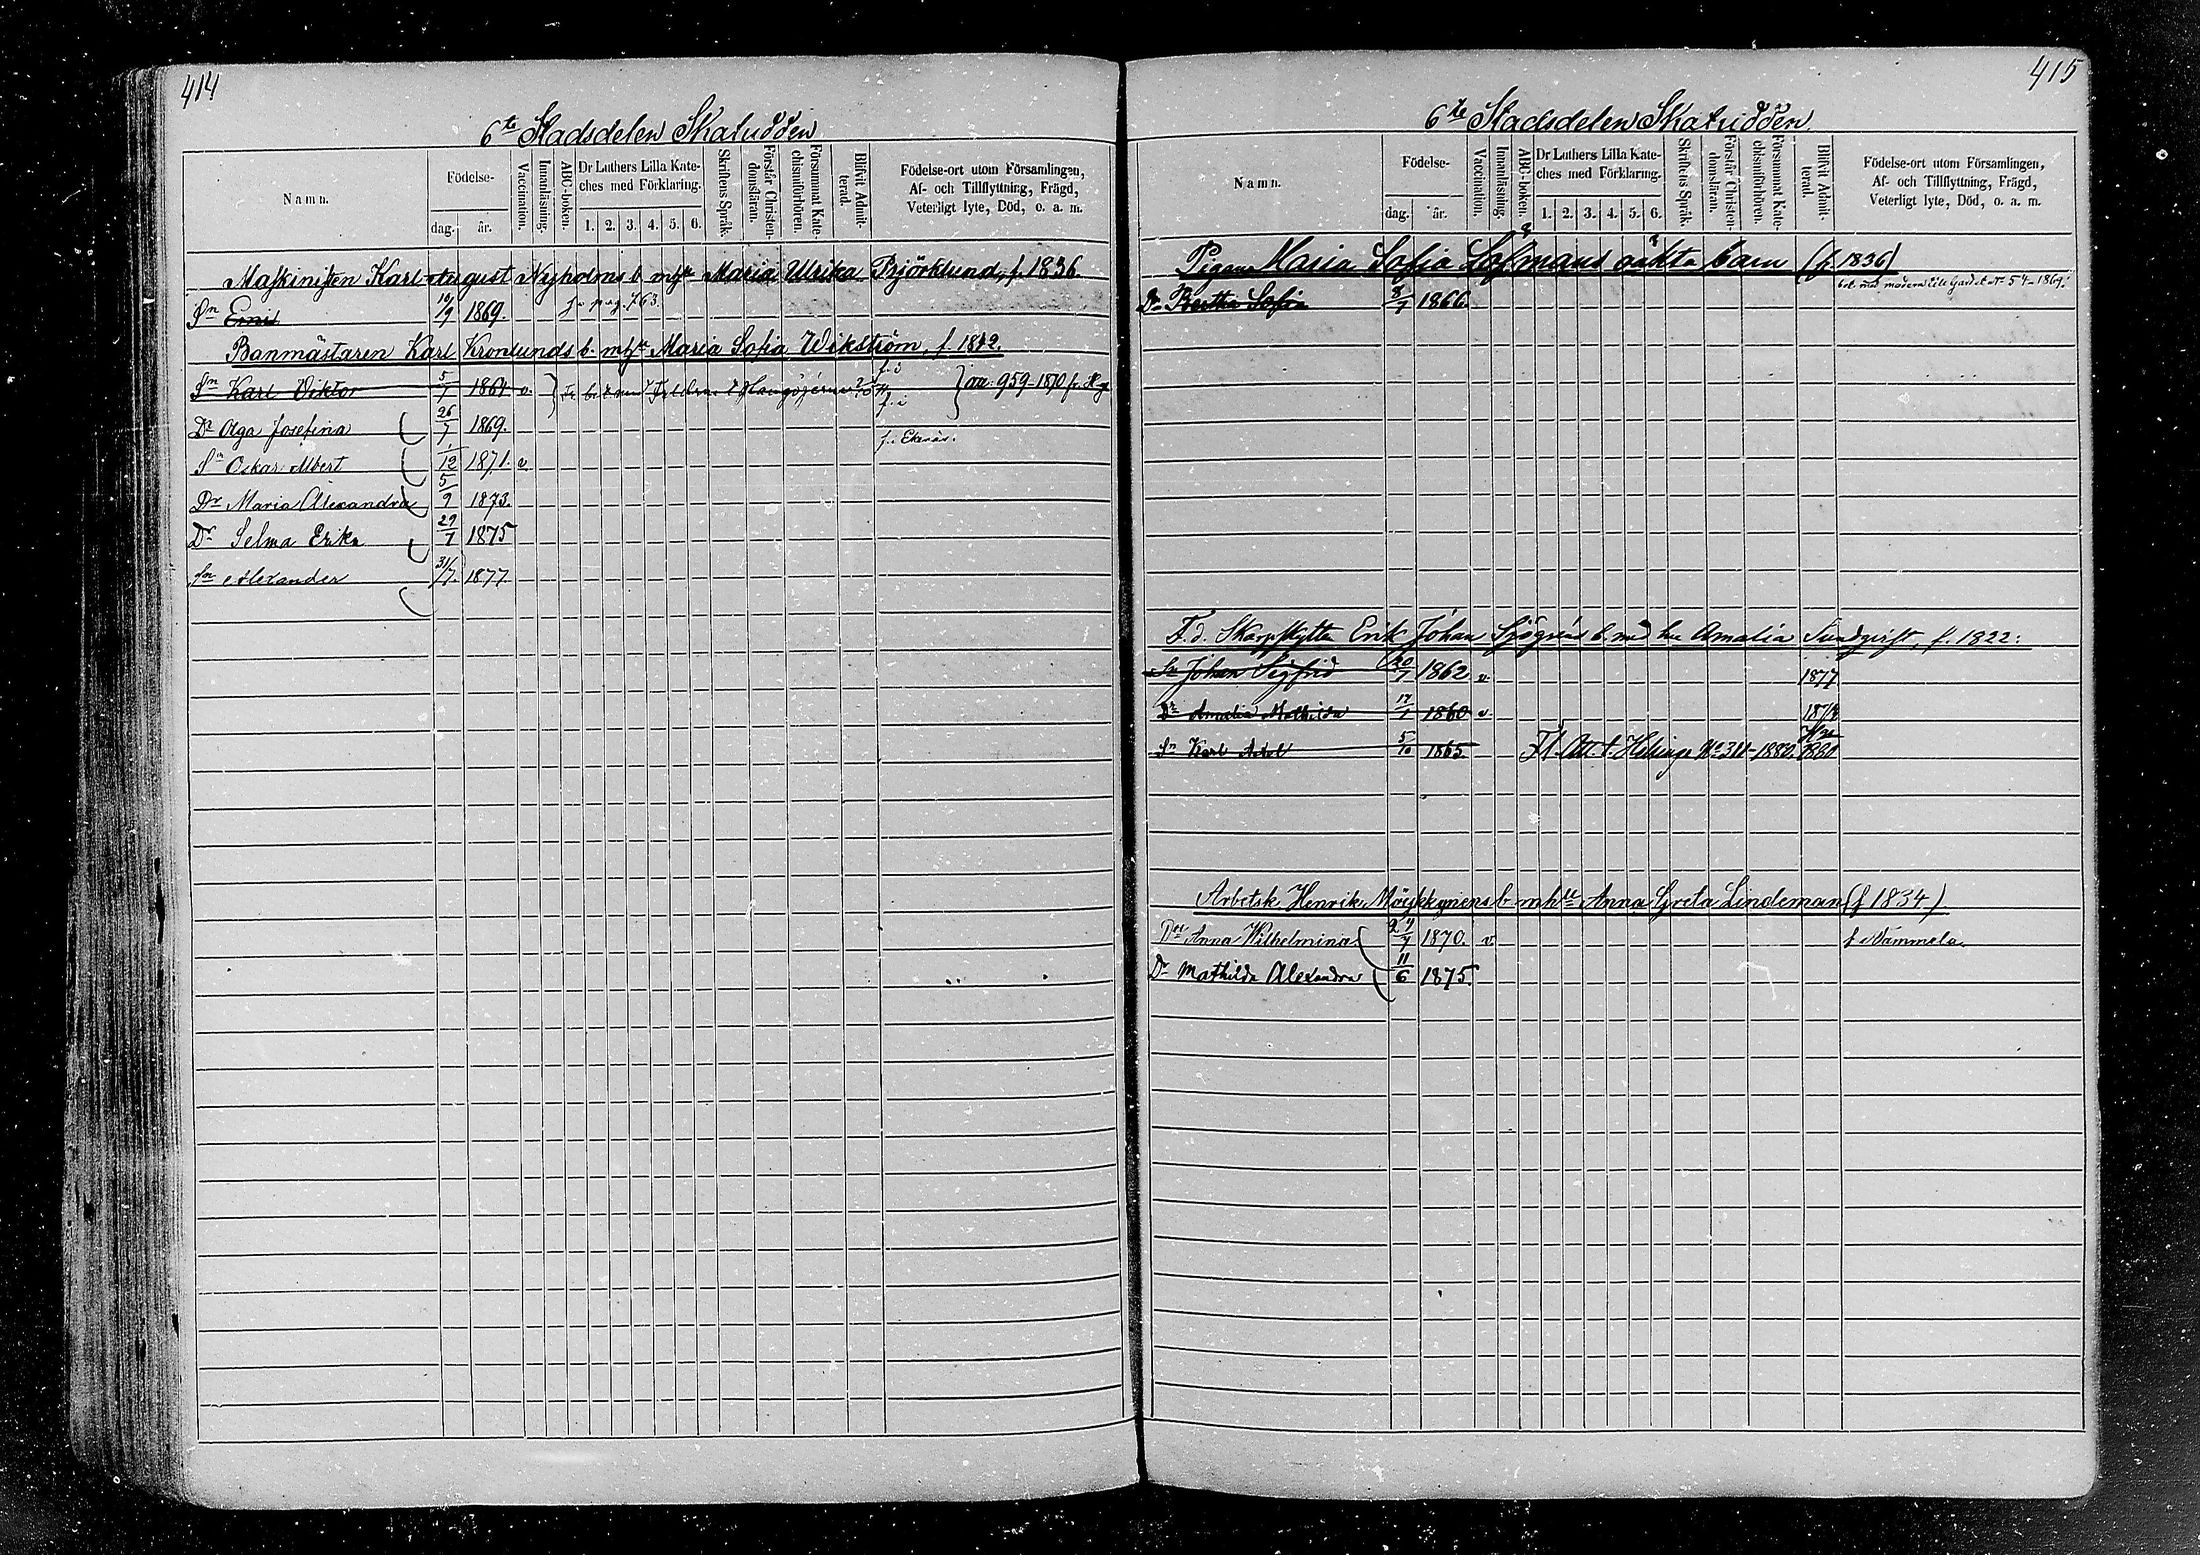 414
6te Stadsdelen Skatudden
Namn.
Födelse-
dag.
år.
Vaccination.
Innanläsning.
ABC-boken.
Dr Luthers Lilla Kate-
ches med Förklaring.
1. 2. 3. 4. 5. 6.
Skriftens Språk.
Förstår Christen-
domsläran.
Försummat Kate-
chismiförhören.
Blifvit Admit-
terad.
Födelse-ort utom Församlingen,
Af- och Tillflyttning, Frägd,
Veterligt lyte, Död, o. a. m.
Maskinisten Karl August Nyholms b. mhu Maria Ulrika Björklund, f. 1836.
Sn Emil 10/9 1869. pag. 763
Banmästaren Karl Kronlunds b. mhu Maria Sofia Wikström, f. 1842.
Sn Karl Viktor 5/7 1864 v.
959-1870 fr.
Dr Olga Josefina 26/7 1869.
f. i Ekenäs.
Sn Oskar Albert 1/12 1871. v
Dr Maria Alexandra 5/9 1873.
Dr Selma Erika 29/7 1875
Sn Alexander 31/7. 1877.
415
6te Stadsdelen Skatudden
Namn.
Födelse-
dag.
år.
Vaccination.
Innanläsning.
ABC-boken.
Dr Luthers Lilla Kate-
ches med Förklaring.
1. 2. 3. 4. 5. 6.
Skriftens Språk.
Förstår Christen-
domsläran.
Försummat Kate-
chismiförhören.
Blifvit Admit-
terad.
Födelse-ort utom Församlingen,
Af- och Tillflyttning, Frägd,
Veterligt lyte, Död, o. a. m.
Pigan Maria Sofia Löfmans oäkta barn (f. 1836)
med modern till Gård No 54-1869.
Dr Bertha Sofia 8/7 1866.
F.d. Skarpskytten Erik Johan Sjögréns b. med hu Amalia Sundqvist, f. 1822.
Sn Johan Sigfrid 20/7 1862 v. 1877
Dr Amalia Mathilda 17/1 1860 v.
Sn Karl Axel 5/10 1865. Fl. Att. t. Helsinge No 311-1880. 1880
Arbetsk Henrik Möykkynens b mhu Anna Greta Lindeman (f 1834)
Dr Anna Wilhelmina 1870. v.
Dr Mathilda Alexandra 11/6 1875.